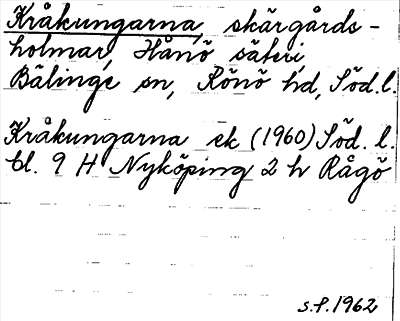 Kråkungarna, skärgårds-
holmar, Hånö säteri,
Bälinge sn, Rönö hd, Söd.l.
Kråkungarna ek (1960) Söd. l.
bl. 9 H Nyköping 2 h Rågö
s.f. 1962